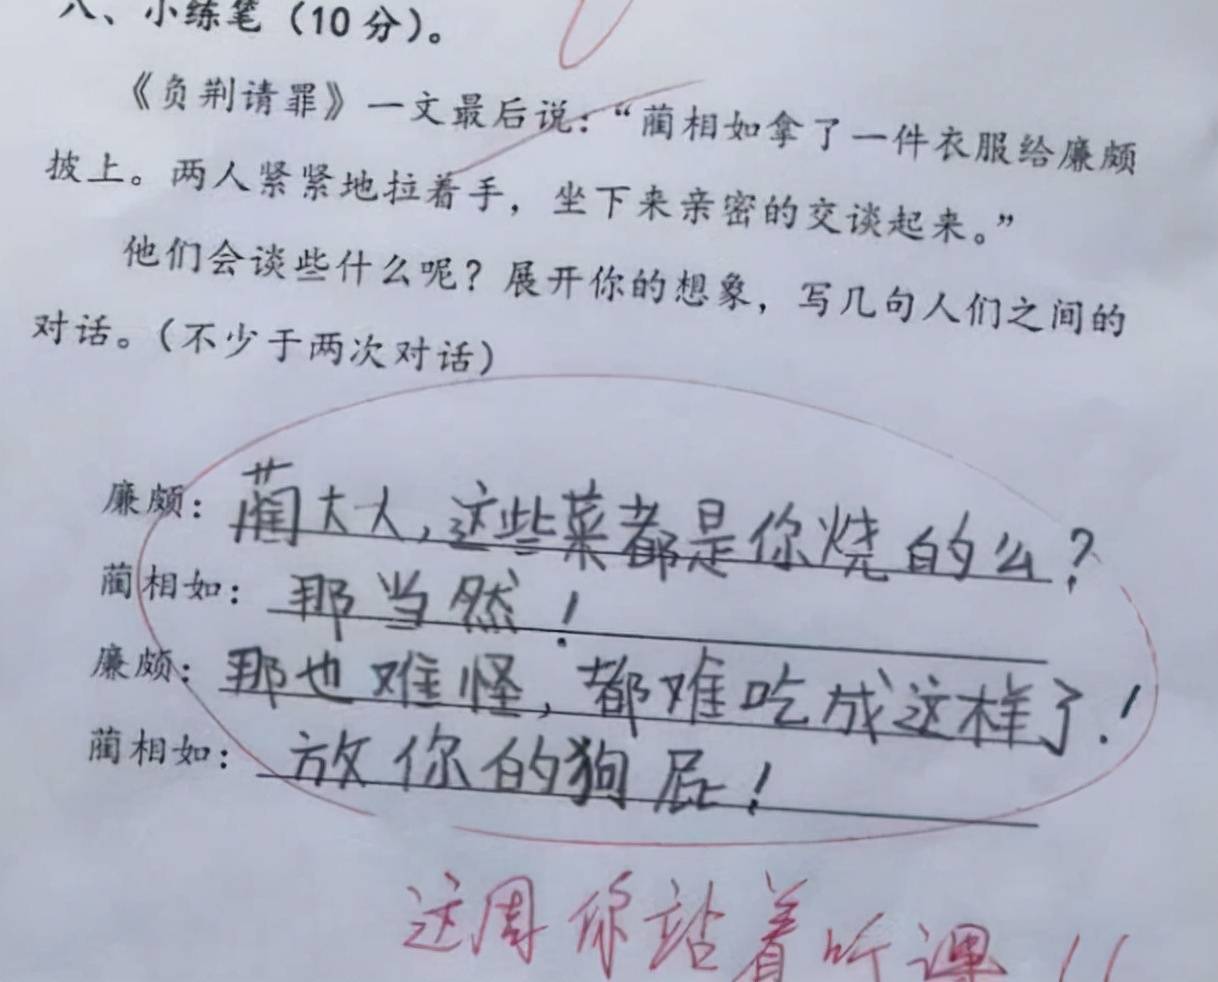 八、小练笔（10分）。
《负荆请罪》一文最后说：“蔺相如拿了一件衣服给廉颇
披上。两人紧紧地拉着手，坐下来亲密的交谈起来。”
他们会谈些什么呢？展开你的想象，写几句人们之间的
对话。（不少于两次对话）
廉颇：蔺大人，这些菜都是你烧的么？
蔺相如：那当然！
廉颇：那也难怪，都难吃成这样了！
蔺相如：放你的狗屁！
这周你站着听课！！